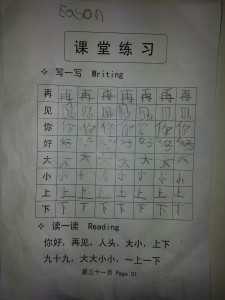 Eason
课堂练习
✧ 写一写 Writing
再 再 再 再 再 再 再 再
见 见 见 见 见 见 见 见
你 你 你 你 你 你 你 你
好 好 好 好 好 好 好 好
大 大 大 大 大
小 小 小 小 小 小 小 小
上 上 上 上 上 上 上 上
下 下 下 下 下 下 下 下
✧ 读一读 Reading
你好，再见，人头，大小，上下
九十九，大大小小，一上一下
第三十一页 Page 31